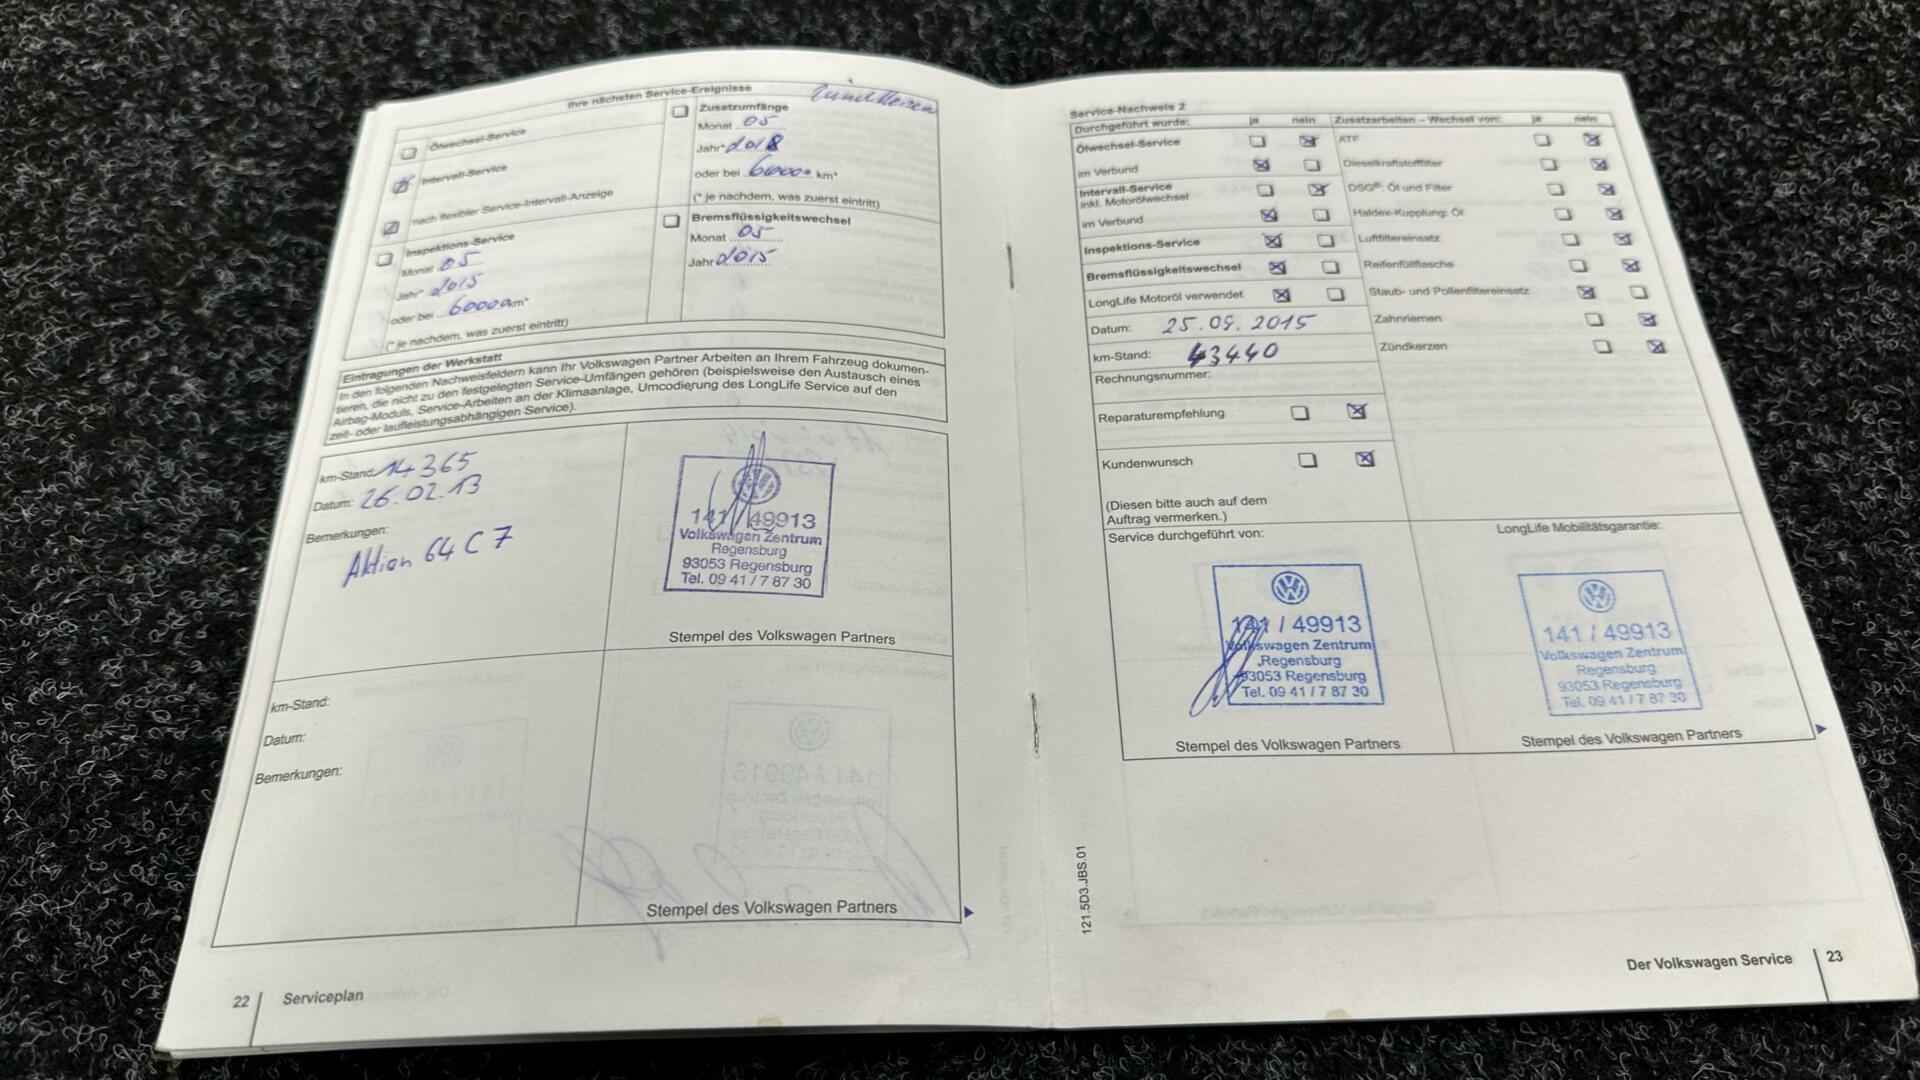 Ihre nächsten Service-Ereignisse
Ölwechsel-Service
Intervall-Service
nach flexibler Service-Intervall-Anzeige
Inspektions-Service
Monat 05
Jahr* 2015
oder bei 60000 km*
(* je nachdem, was zuerst eintritt)
Zusatzumfänge
Monat 05
Jahr* 2018
oder bei 60000 km*
(* je nachdem, was zuerst eintritt)
Bremsflüssigkeitswechsel
Monat 05
Jahr 2015
Eintragungen der Werkstatt
In den folgenden Nachweisfeldern kann Ihr Volkswagen Partner Arbeiten an Ihrem Fahrzeug dokumen-
tieren, die nicht zu den festgelegten Service-Umfängen gehören (beispielsweise den Austausch eines
Airbag-Moduls, Service-Arbeiten an der Klimaanlage, Umcodierung des LongLife Service auf den
zeit- oder laufleistungsabhängigen Service).
km-Stand: 14 365
Datum: 26.02.13
Bemerkungen:
Aktion 64 C 7
141 / 49913
Volkswagen Zentrum
Regensburg
93053 Regensburg
Tel. 09 41 / 7 87 30
Stempel des Volkswagen Partners
km-Stand:
Datum:
Bemerkungen:
Stempel des Volkswagen Partners
22 Serviceplan
Service-Nachweis 2
Durchgeführt wurde: ja nein
Ölwechsel-Service
im Verbund
Intervall-Service
inkl. Motorölwechsel
im Verbund
Inspektions-Service
Bremsflüssigkeitswechsel
LongLife Motoröl verwendet
Datum: 25.09.2015
km-Stand: 43440
Rechnungsnummer:
Reparaturempfehlung
Kundenwunsch
(Diesen bitte auch auf dem
Auftrag vermerken.)
Zusatzarbeiten – Wechsel von: ja nein
ATF
Dieselkraftstofffilter
DSG®: Öl und Filter
Haldex-Kupplung: Öl
Luftfiltereinsatz
Reifenfüllflasche
Staub- und Pollenfiltereinsatz
Zahnriemen
Zündkerzen
Service durchgeführt von:
141 / 49913
Volkswagen Zentrum
Regensburg
93053 Regensburg
Tel. 09 41 / 7 87 30
Stempel des Volkswagen Partners
LongLife Mobilitätsgarantie:
141 / 49913
Volkswagen Zentrum
Regensburg
93053 Regensburg
Tel. 09 41 / 7 87 30
Stempel des Volkswagen Partners
121.5D3.JBS.01
Der Volkswagen Service 23